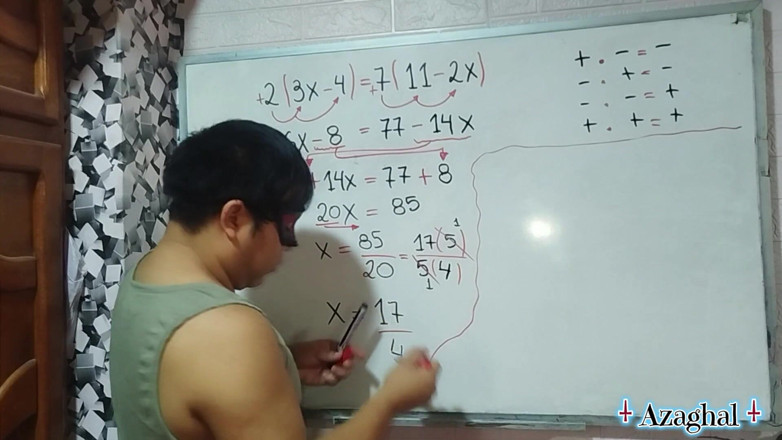 +2(3x-4)=+7(11-2x)
x-8 = 77-14x
+14x = 77+8
20x = 85
x = 85/20 = 17(5)/5(4)
1
1
x = 17/4
+ . - = -
- . + = -
- . - = +
+ . + = +
Azaghal